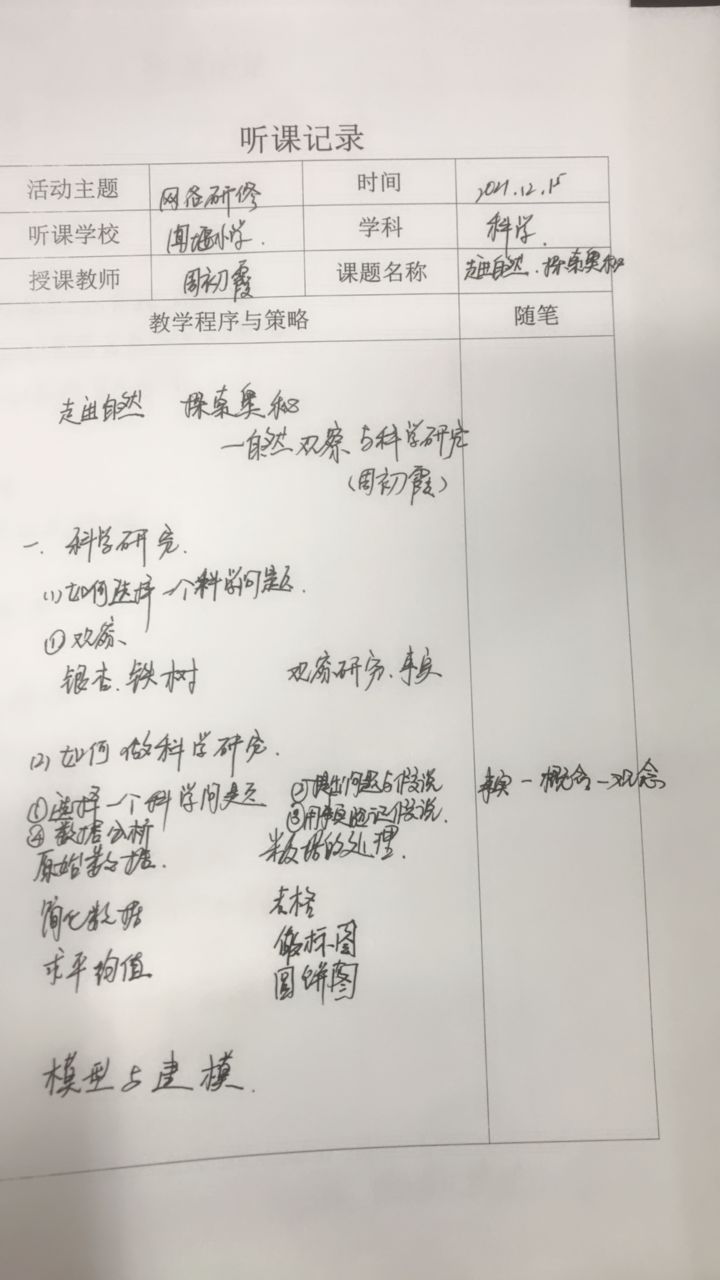 听课记录
活动主题 网络研修 时间 2021.12.15
听课学校 闻堰小学. 学科 科学.
授课教师 周初霞 课题名称 走进自然.探索奥秘
教学程序与策略 随笔
走进自然 探索奥秘
—自然观察与科学研究
(周初霞)
一. 科学研究.
(1)如何选择一个科学问题.
①观察、
银杏.铁树 观察研究.事实
(2)如何做科学研究.
①选择一个科学问题 ②提出问题与假说 事实—概念—观念
④数据分析 ③用事实验证假说.
原始数据. 数据的处理.
简化数据 表格
求平均值 做标图
圆饼图
模型与建模.